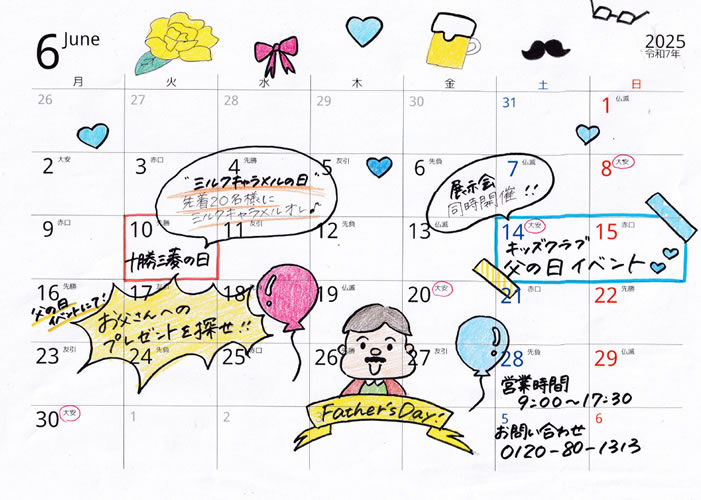 6 June
2025
令和7年
月 火 水 木 金 土 日
26 27 28 29 30 31 1 仏滅
2 大安 3 赤口 4 先勝 5 友引 6 先負 7 仏滅 8 大安
"ミルクキャラメルの日"
先着20名様に
ミルクキャラメルオレ♪
展示会
同時開催!!
9 赤口 10 先勝 11 友引 12 先負 13 仏滅 14 大安 15 赤口
十勝三菱の日
キッズクラブ
父の日イベント
16 先勝 17 友引 18 先負 19 仏滅 20 大安 21 赤口 22 先勝
父の日
イベントにて!
お父さんへの
プレゼントを探せ!!
23 友引 24 先負 25 赤口 26 27 28 先負 29 仏滅
営業時間
9:00〜17:30
Father's Day!
30 大安 1 2 5 6
お問い合わせ
0120-80-1313